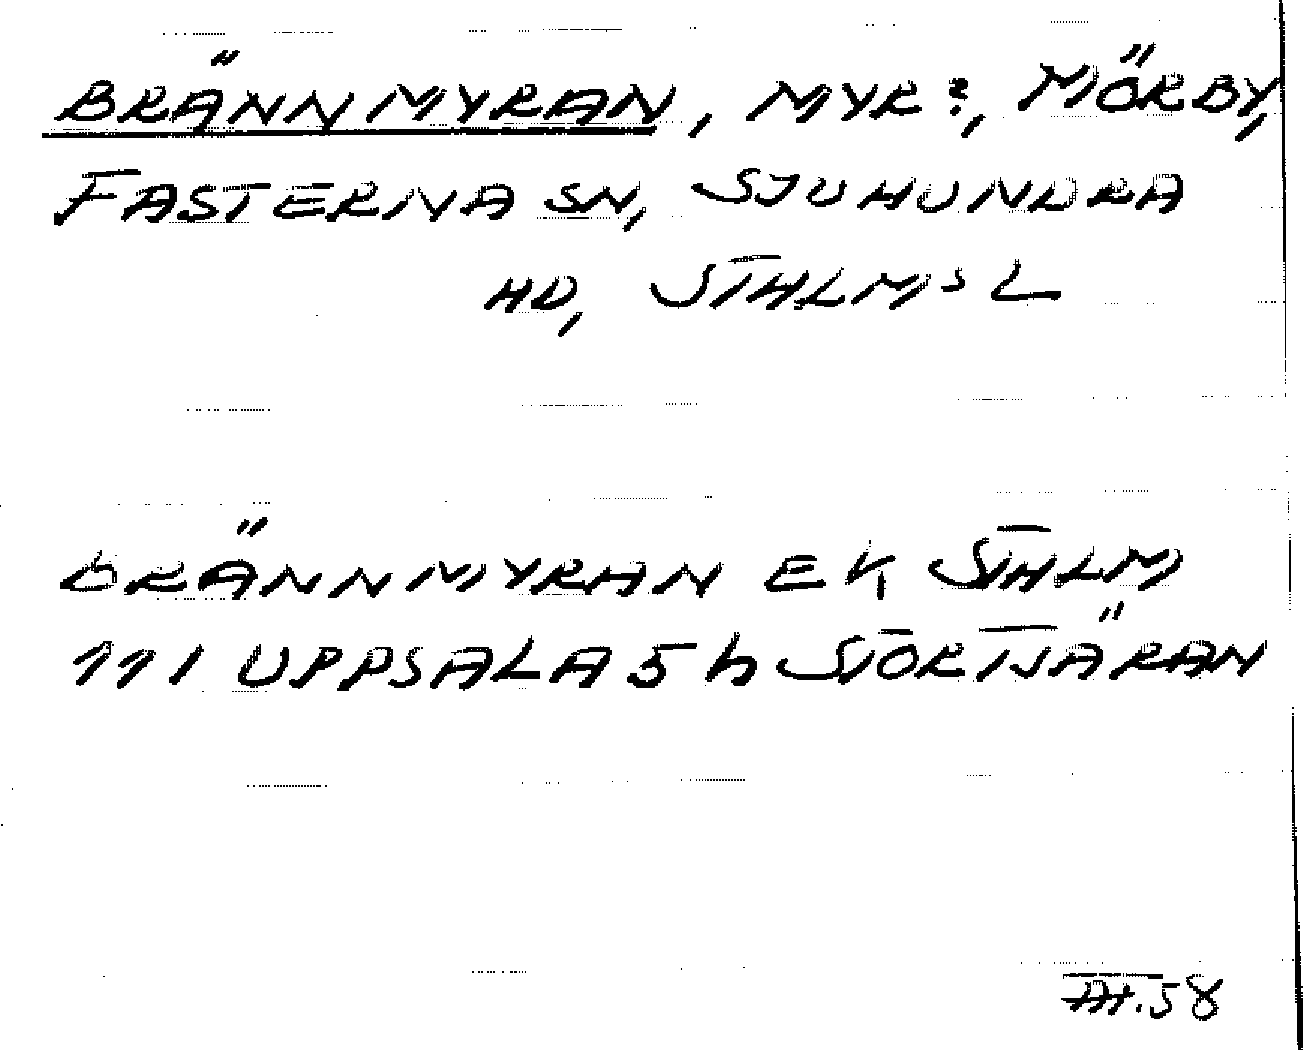 BRÄNNMYRAN, MYR?, MÖRBY,
FASTERNA SN, SJUHUNDRA
HD, STHLMS L
BRÄNNMYRAN EK STHLM
111 UPPSALA 5 h SJÖRTJÄRAN